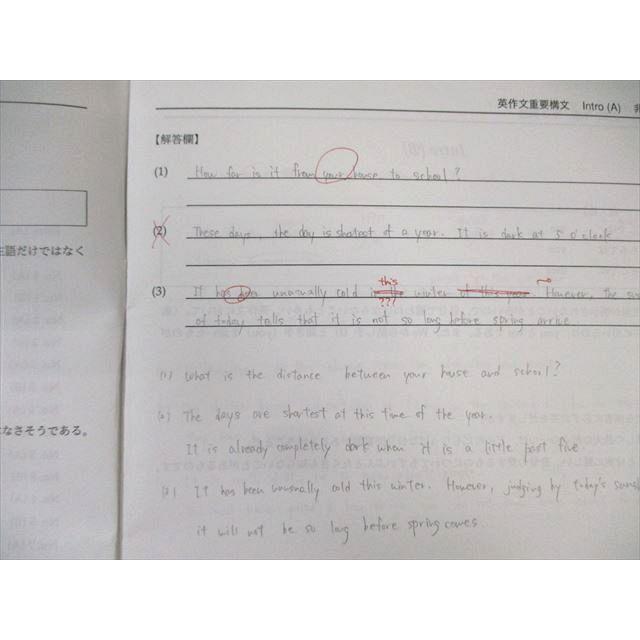 英作文重要構文 Intro (A)
【解答欄】
(1) How far is it from your house to school?
主語だけではなく
(2) These days, the day is shortest of a year. It is dark at 5 o'clock
this
(3) It has been unusually cold in the winter of this year. However, the
???
of today tells that it is not so long before spring arrive
(1) What is the distance between your house and school?
(2) The days are shortest at this time of the year.
なさそうである。
It is already completely dark when it is a little past five
(3) It has been unusually cold this winter. However, judging by today's
it will not be so long before spring comes.